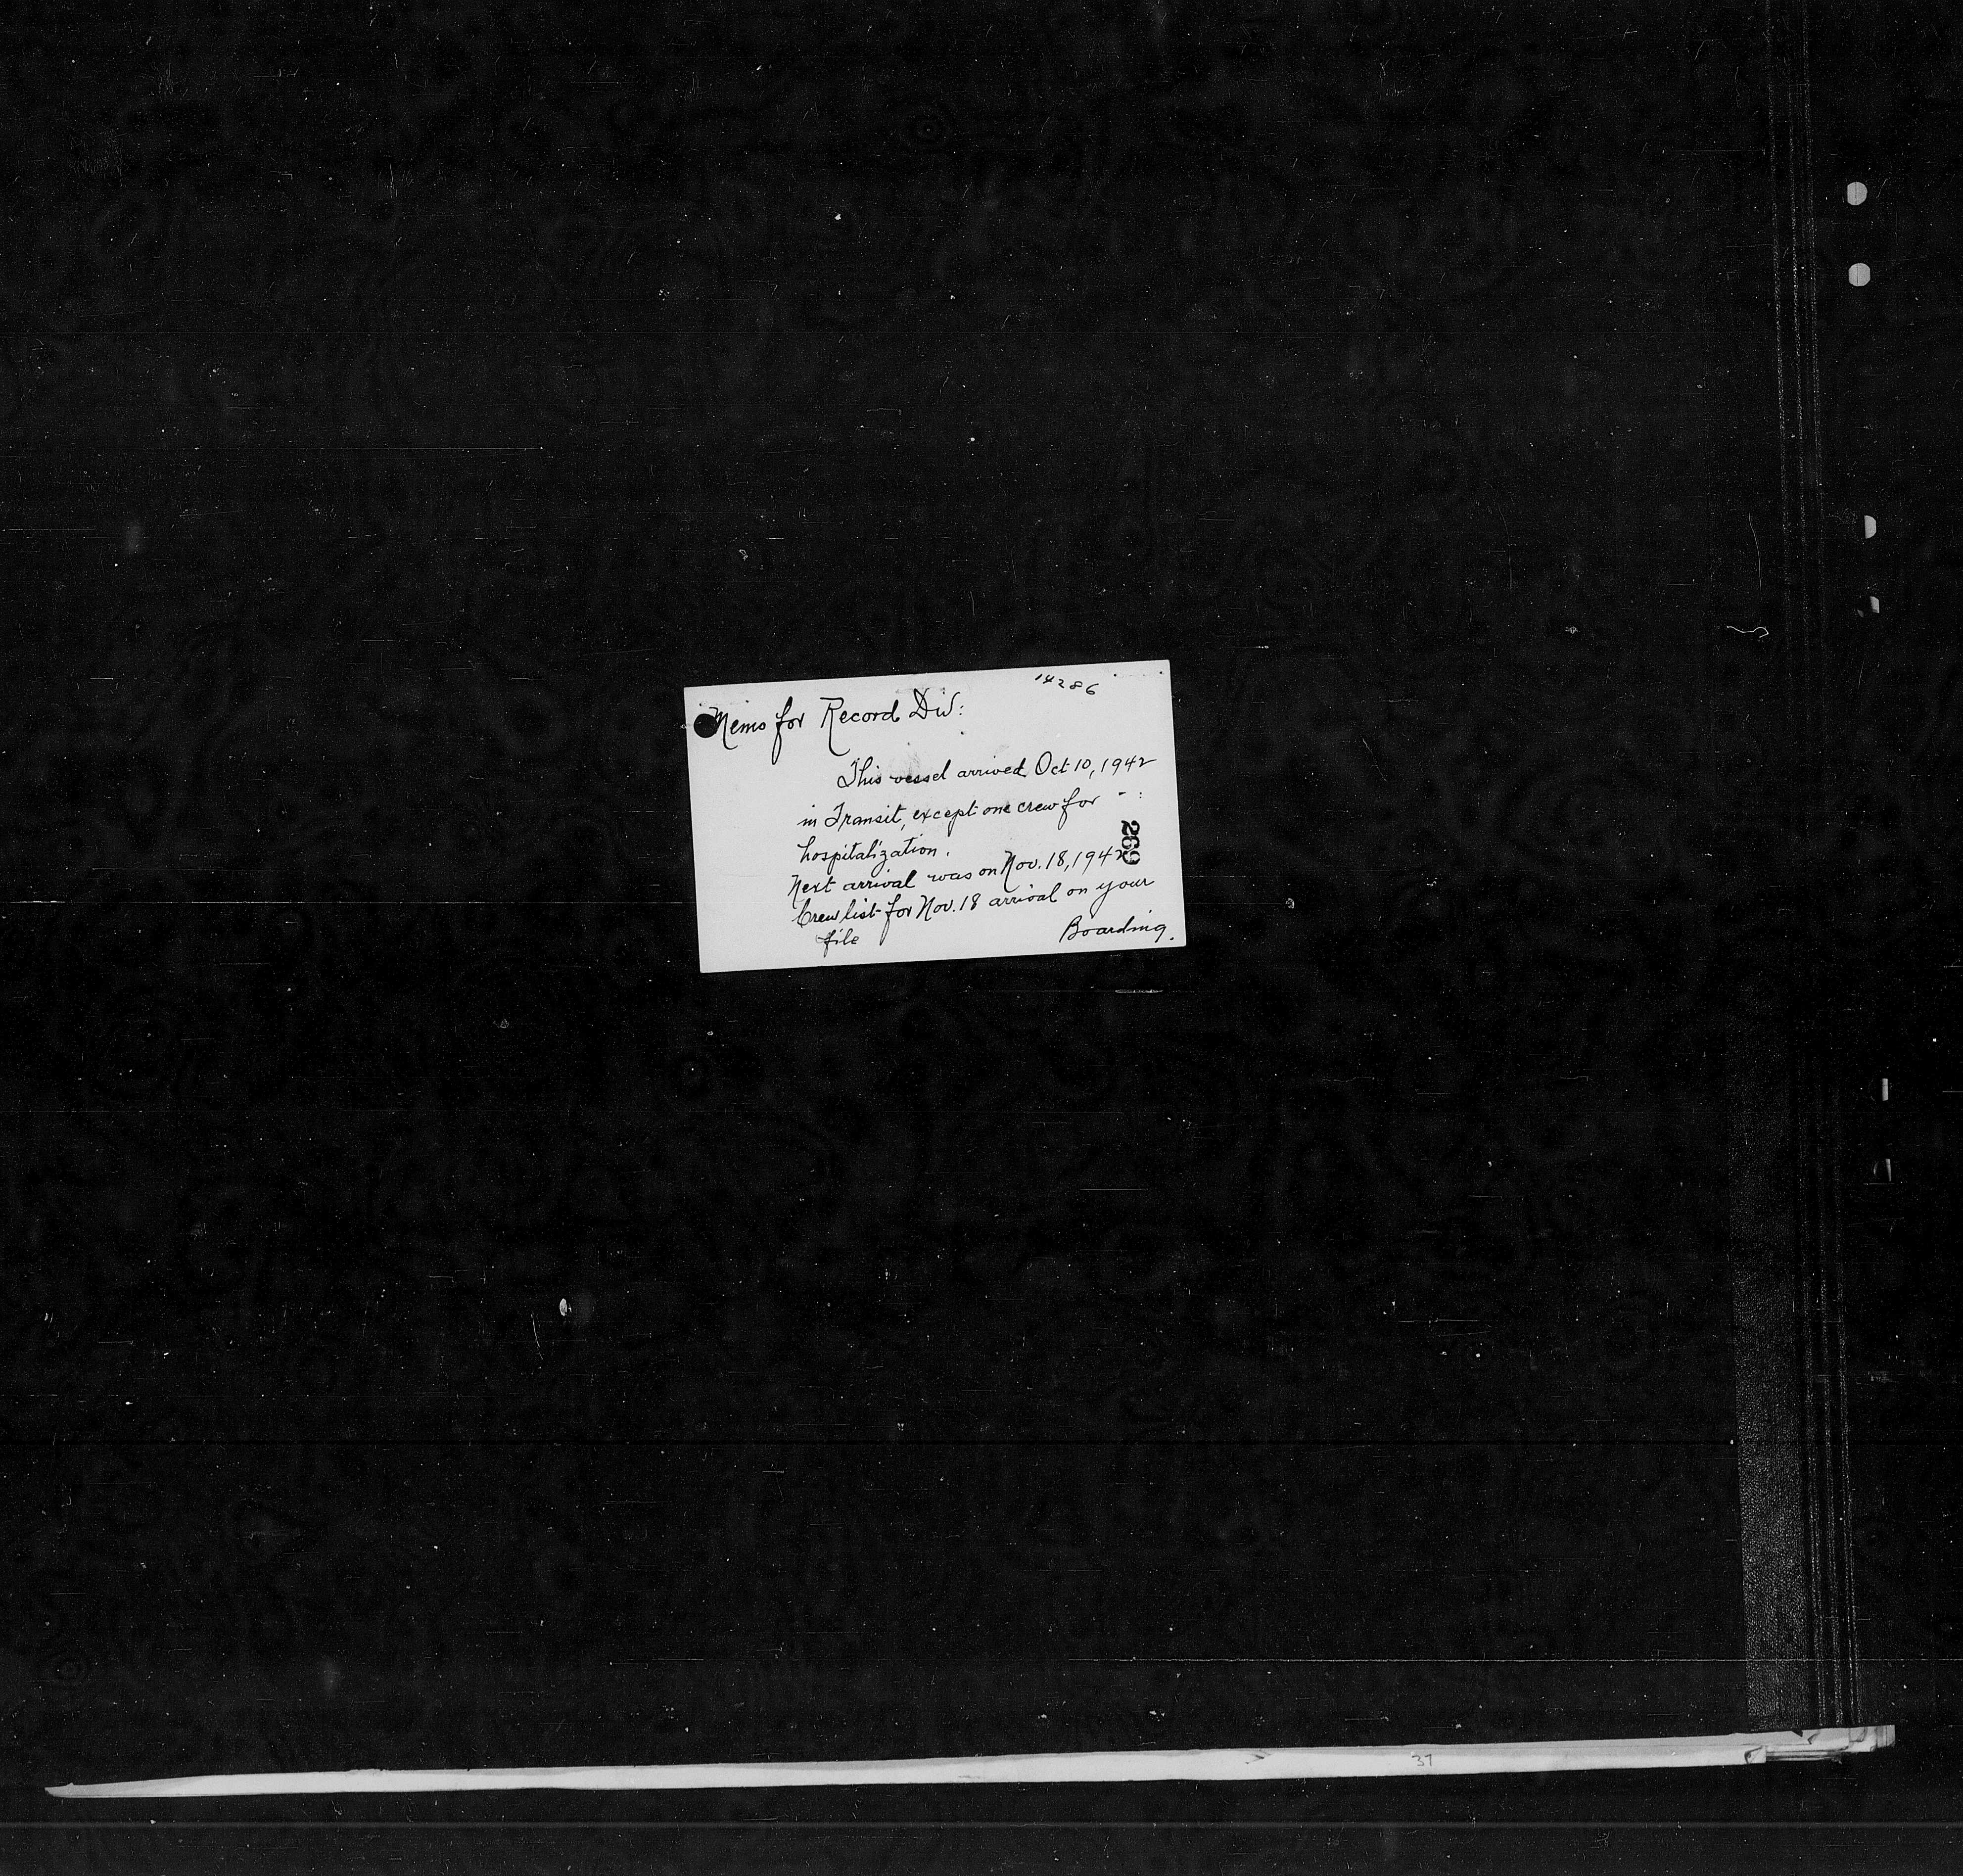 14286
Memo for Record Div:
This vessel arrived Oct 10, 1942
in Transit, except one crew for
hospitalization.
269
Next arrival was on Nov. 18, 1942
Crew list for Nov. 18 arrival on your
file
Boarding.
37